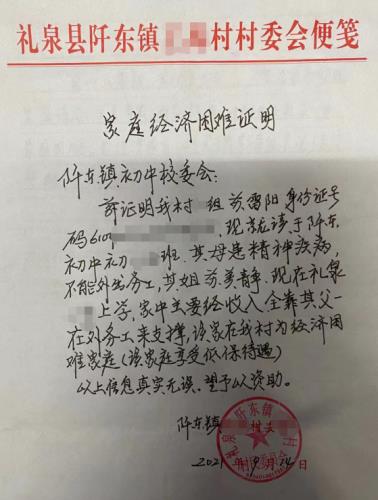 礼泉县阡东镇 村村委会便笺
家庭经济困难证明
阡东镇初中校委会:
兹证明我村 组 雷阳身份证号
码610 ,现就读于阡东
初中初 班.其母患精神疾病,
不能外出务工,其姐 美静.现在礼泉
上学,家中主要经收入全靠其父一
在外务工来支撑,该家在我村为经济困
难家庭(该家庭享受低保待遇)
以上信息真实无误.望予以资助。
阡东镇 村委
2021年9月14日
礼泉县阡东镇 村
村民委员会